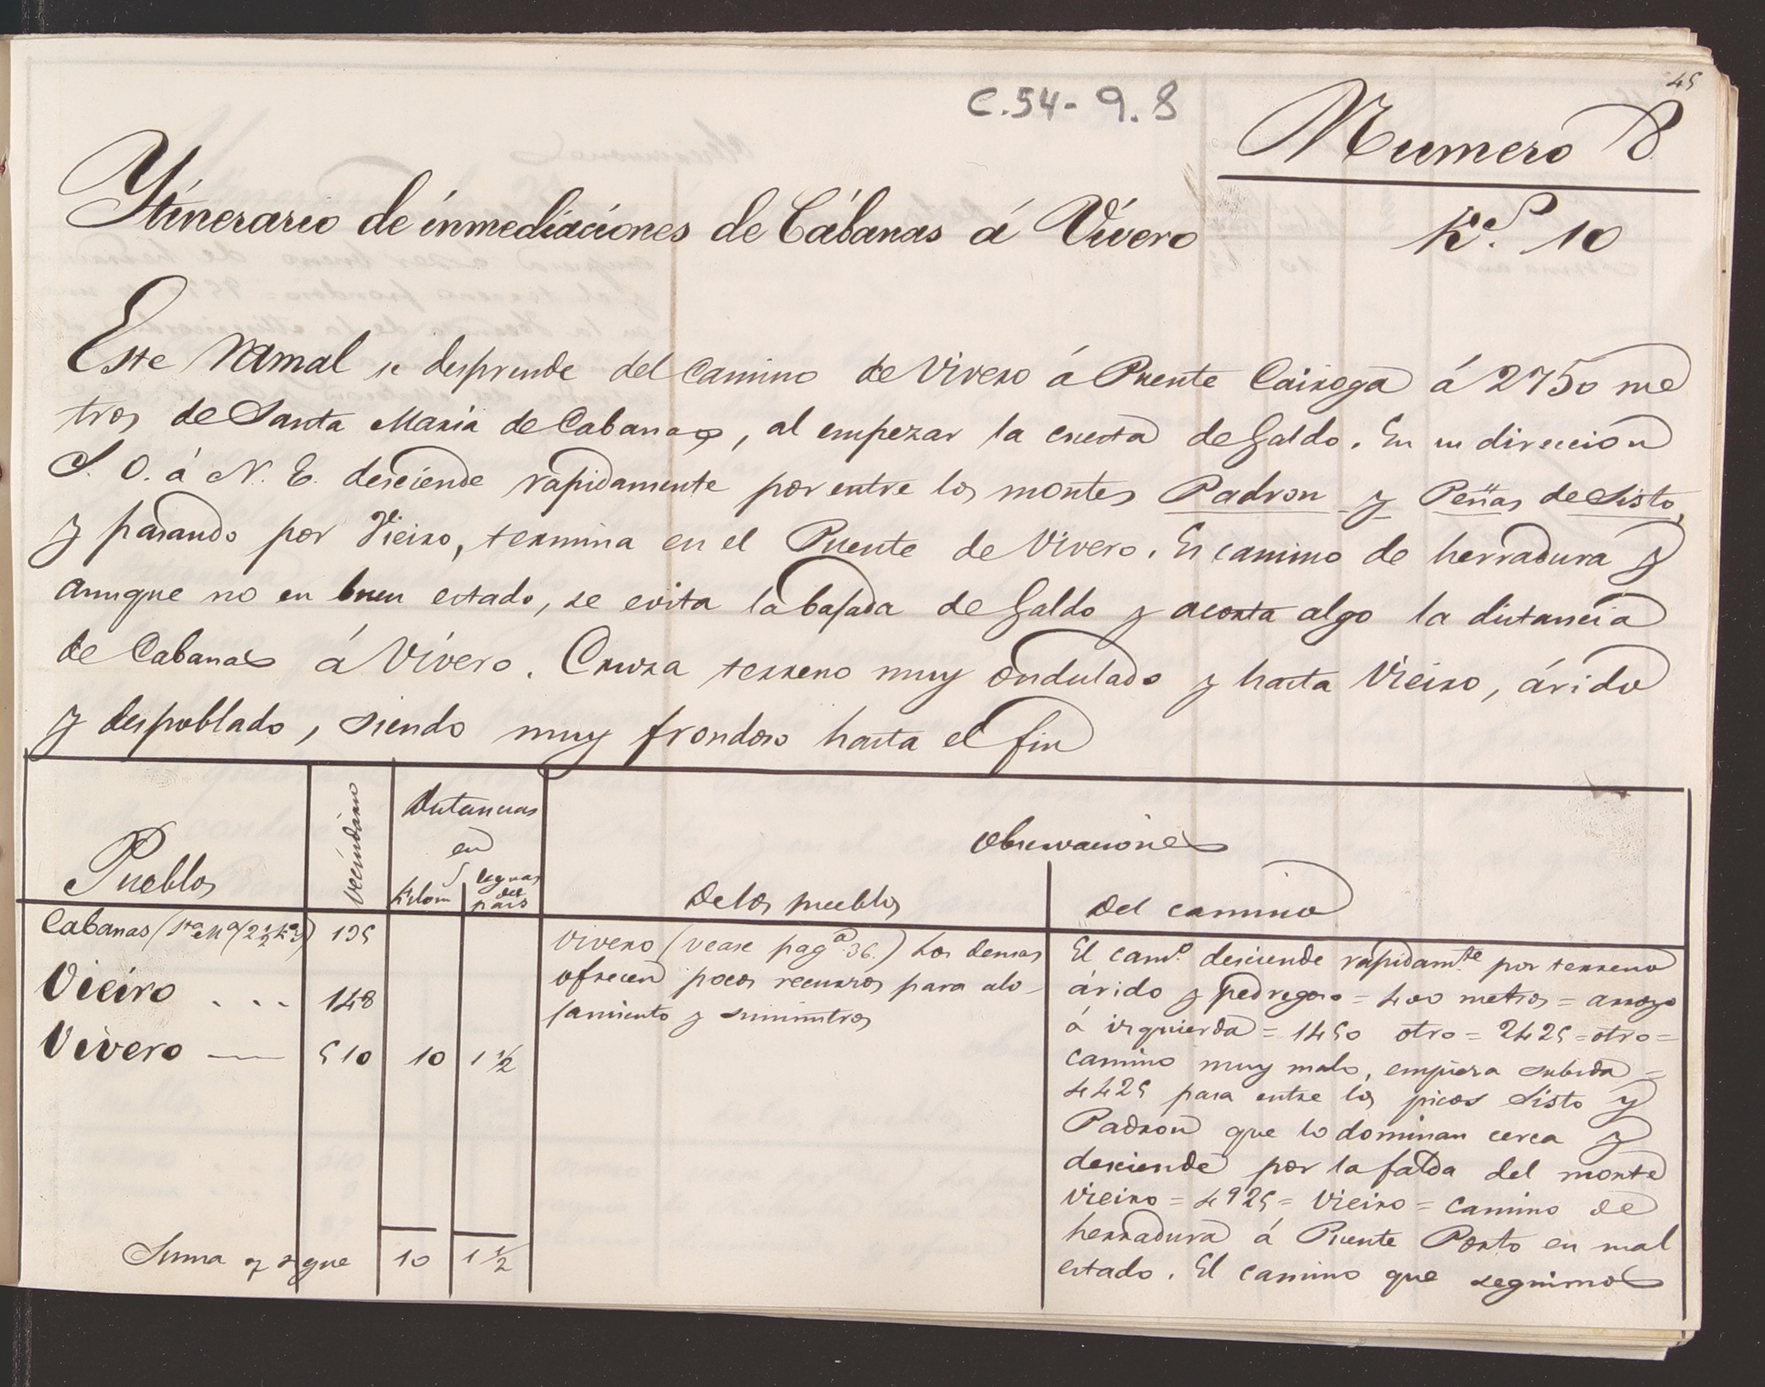 45
C.54-9.8
Numero 8
Ytinerario de inmediaciones de Cabanas á Vivero
Ks. 10
Este ramal se desprende del camino de Vivero á Puente Cairoga á 2750 me
tros de Santa Maria de Cabanas, al empezar la cuesta de Galdo. En su direccion
S. O. á N. E. desciende rapidamente por entre los montes Padron y Peñas de Sisto,
y pasando por Vieiro, termina en el Puente de Vivero. Es camino de herradura y
aunque no en buen estado, se evita la bajada de Galdo y acorta algo la distancia
de Cabanas á Vivero. Cruza terreno muy ondulado y hasta Vieiro, árido
y despoblado, siendo muy frondoso hasta el fin
Pueblos
Vecindario
Distancias
en
Kilom
Leguas
del
pais
Observaciones
De los pueblos
Del camino
Cabanas (Sta Ma (2 1/2 ks) 135
Vieiro . . . 148
Vivero — 510 10 1 1/2
Suma y sigue 10 1 1/2
Vivero (vease paga 36.) Los demas
ofrecen pocos recursos para alo-
jamiento y suministros
El camo. desciende rapidamte por terreno
árido y pedregoso = 400 metros = arroyo
á izquierda = 1450 otro = 2425 = otro =
camino muy malo, empieza subida =
4425 pasa entre los picos Sisto y
Padron que lo dominan cerca y
desciende por la falda del monte
Vieiro = 4925 = Vieiro = camino de
herradura á Puente Porto en mal
estado. El camino que seguimos